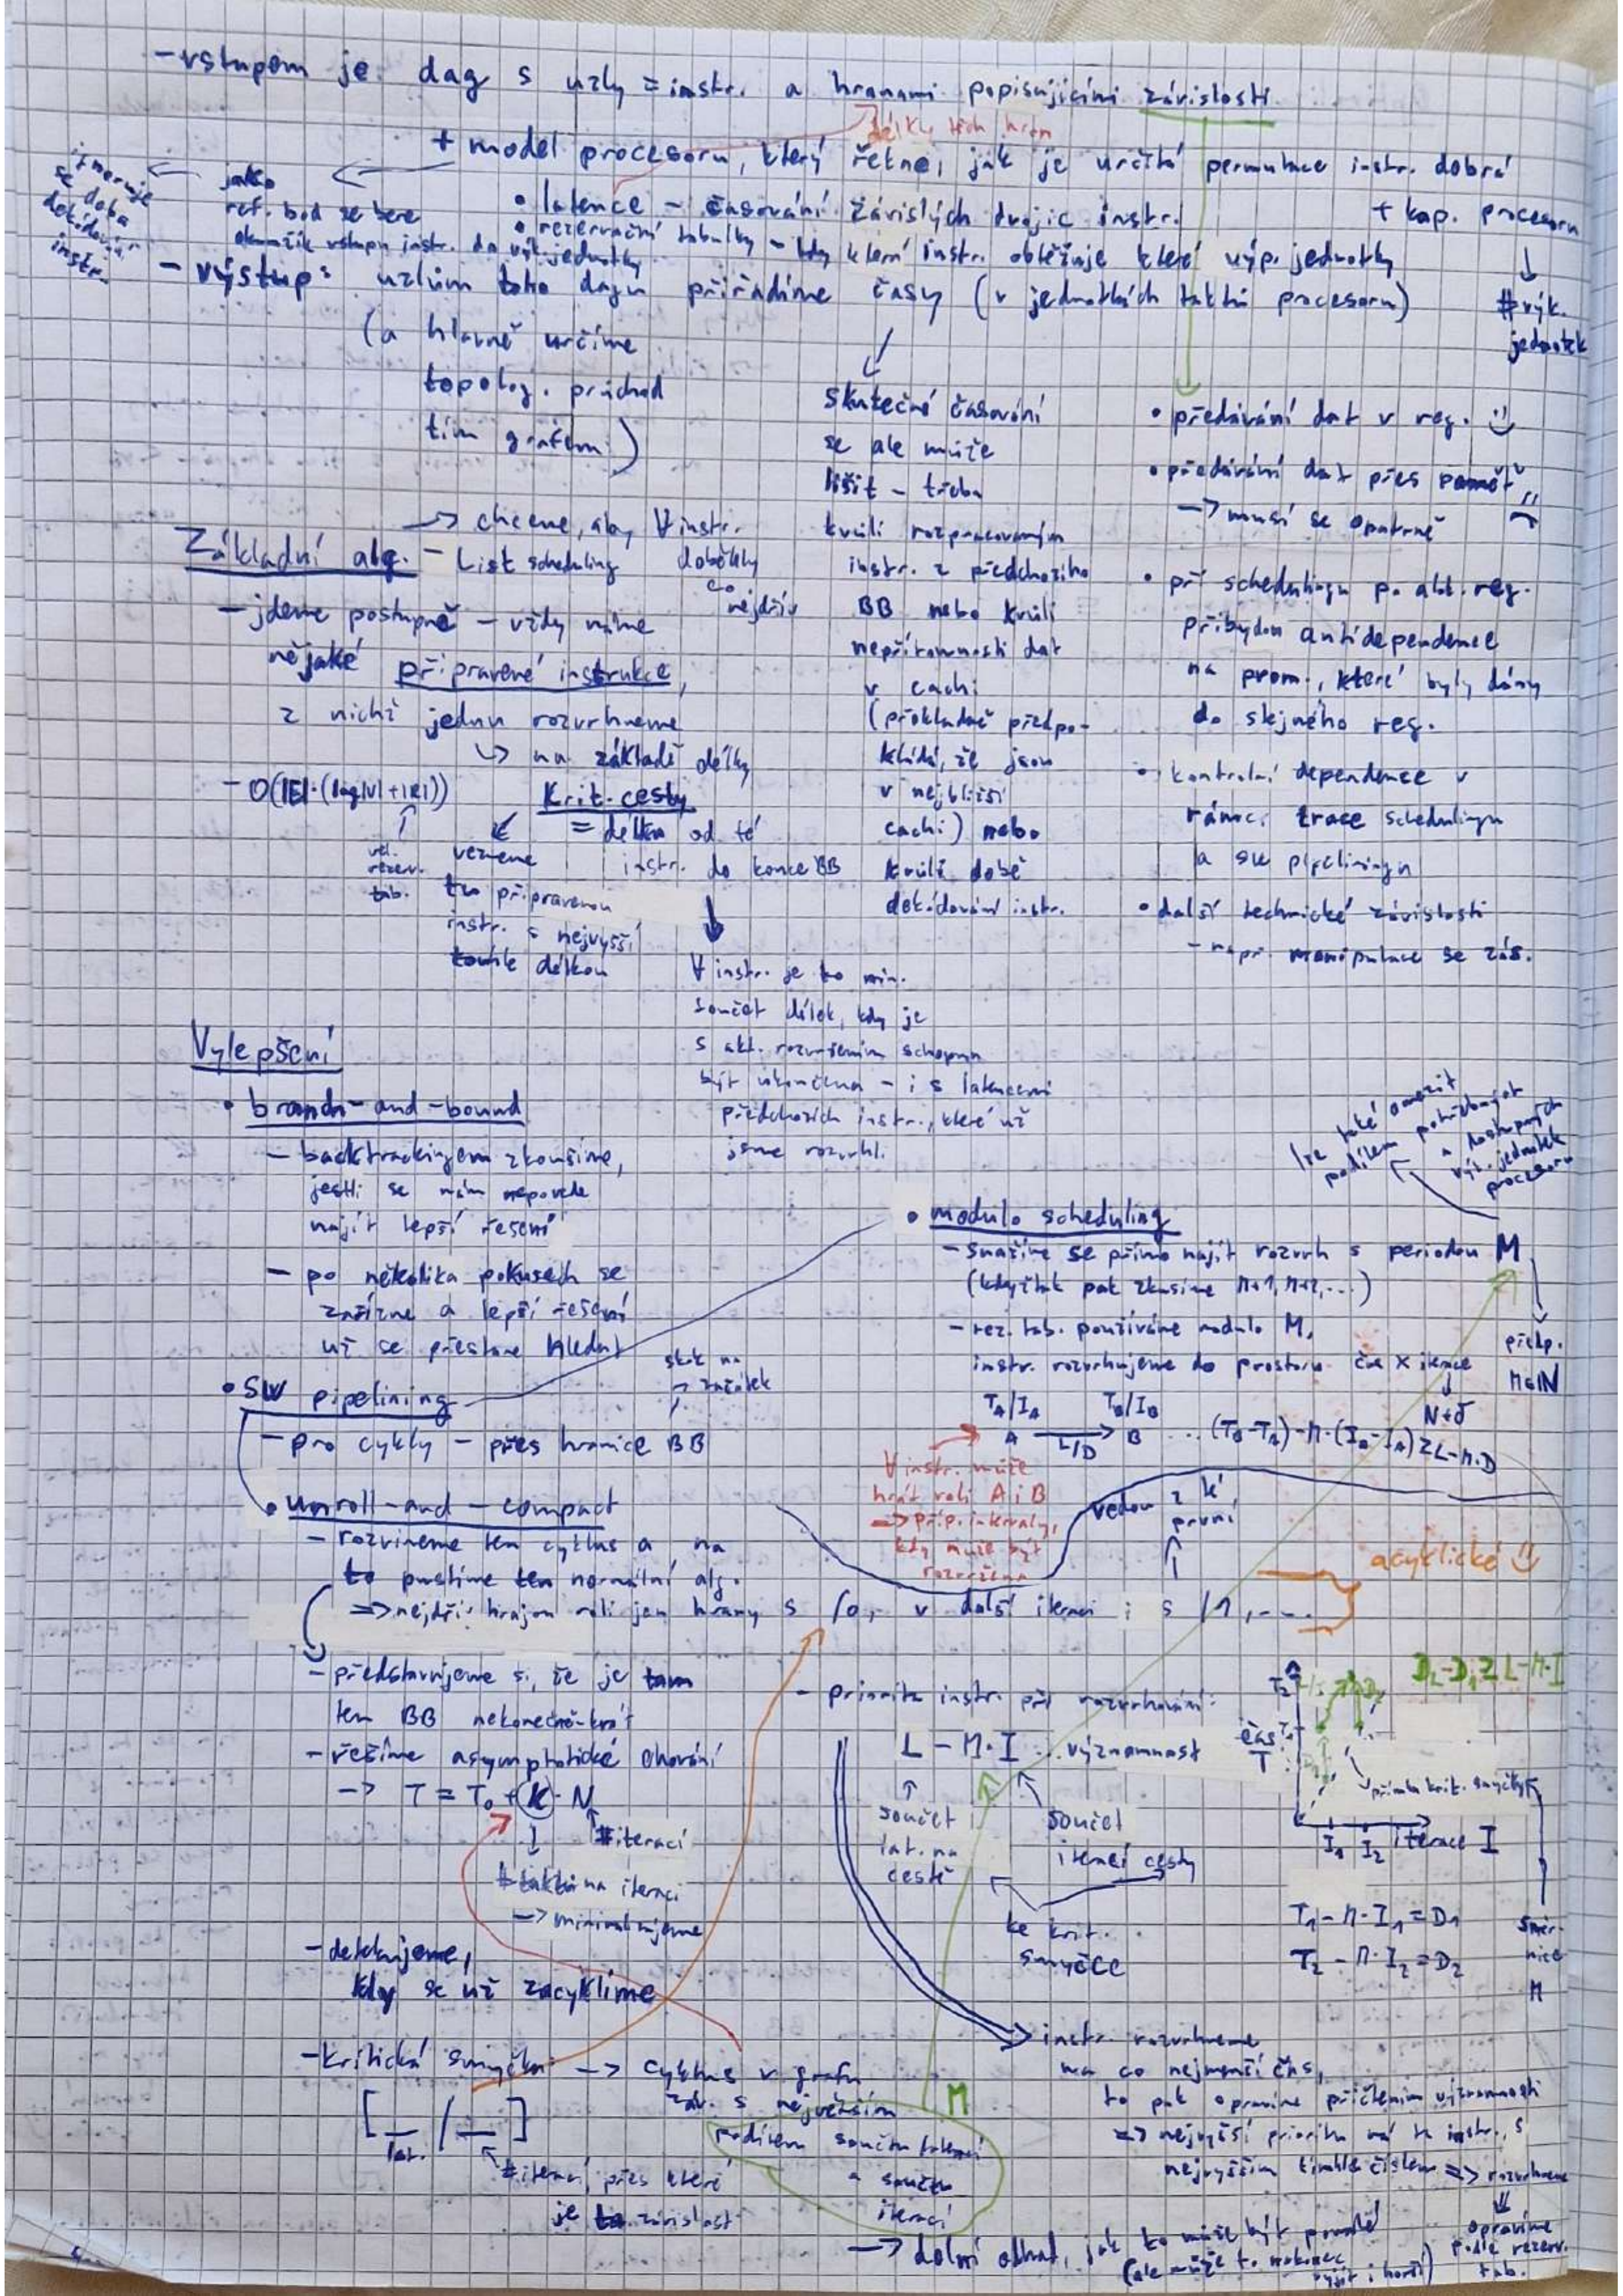 - vstupem je dag s uzly = instr. a hranami popisujícími závislosti
délky těch hran
+ model procesoru, který řekne, jak je určitá permutace instr. dobrá
• latence - časování závislých dvojic instr.
+ kap. procesoru
↓
# výk.
jednotek
• rezervační tabulky - kdy která instr. obtěžuje které výp. jednotky
jako
ref. bod se bere
okamžik vstupu instr. do výk. jednotky
ignoruje
se doba
dekódování
instr.
- výstup: uzlům toho dagu přiřadíme časy (v jednotkách taktů procesoru)
(a hlavně určíme
topolog. průchod
tím grafem)
skutečné časování
se ale může
lišit - třeba
kvůli rozpracovaným
instr. z předchozího
BB nebo kvůli
nepřítomnosti dat
v cachi
(překladač předpo-
kládá, že jsou
v nejbližší
cachi) nebo
kvůli době
dekódování instr.
• předávání dat v reg. :)
• předávání dat přes paměť :(
-> musí se opatrně
• při schedulingu p. alok. reg.
přibydou antidependence
na prom., které byly dány
do stejného reg.
• kontrolní dependence v
rámci trace schedulingu
a sw pipeliningu
• další technické závislosti
- např. manipulace se zás.
Základní alg. - List scheduling
-> chceme, aby ∀ instr.
doběhly
co
nejdřív
- jdeme postupně - vždy máme
nějaké připravené instrukce,
z nichž jednu rozvrhneme
↳ na základě délky
krit. cesty
= délka od té
instr. do konce BB
- O(|E|·(log|V|+|R|))
↑
vel.
rezerv.
tab.
vezmeme
tu připravenou
instr. s nejvyšší
touhle délkou
∀ instr. je to min.
součet délek, kdy je
s akt. rozvržením schopna
být ukončena - i s latencemi
předchozích instr., které už
jsme rozvrhl.
Vylepšení
• branch-and-bound
- backtrackingem zkoušíme,
jestli se nám nepovede
najít lepší řešení
- po několika pokusech se
zařízne a lepší řešení
už se přestane hledat
• SW pipelining
- pro cykly - přes hranice BB
skok na
začátek
• unroll-and-compact
- rozvineme ten cyklus a na
to pustíme ten normální alg.
=> nejdřív hrajou roli jen hrany s /0, v další iteraci i s /1, ...
vedou z k
první
acyklické :)
- představujeme si, že je tam
ten BB nekonečně-krát
- řešíme asymptotické chování
-> T = T₀ + K · N
# iterací
↓
# taktů na iteraci
-> minimalizujeme
- detekujeme,
kdy se už zacyklíme
- kritická smyčka -> cyklus v grafu
záv. s největším
podílem součtu latencí
a součtu
iterací
M
[ _ / _ ]
lat.
# iterací, přes které
je ta závislost
-> dolní odhad, jak to může být použité
(ale může to nakonec
vyjít i horší)
• modulo scheduling
- snažíme se přímo najít rozvrh s periodou M
(kdyžtak pak zkusíme M+1, M+2, ...)
lze také omezit
podílem potřebných
a dostupných
výk. jednotek
procesoru
předp.
M∈ℕ
- rez. tab. používáme modulo M,
instr. rozvrhujeme do prostoru čas × iterace
T_A/I_A T_B/I_B
A —L/D→ B ... (T_B-T_A)-M·(I_B-I_A) ≥ L-M·D
∀ instr. může
hrát roli A i B
=> příp. intervaly,
kdy může být
rozvržena
- priorita instr. při rozvrhování:
L - M·I ... významnost
↑
součet
lat. na
cestě
součet
iterací cesty
ke krit.
smyčce
D₂-D₁ ≥ L-M·I
T₂
čas
T
přímka krit. smyčky
I₁ I₂ iterace I
T₁ - M·I₁ = D₁
T₂ - M·I₂ = D₂
směr-
nice
M
instr. rozvrhneme
na co nejmenší čas,
to pak opravíme přičtením významnosti
=> nejvyšší prioritu má ta instr. s
nejvyšším tímhle číslem => rozvrhneme
⇓
opravíme
podle rezerv.
tab.